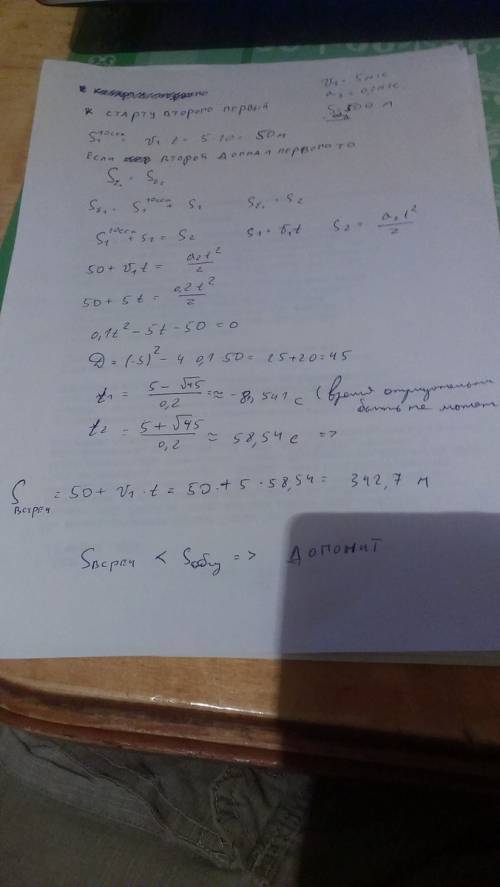 V₁ = 5 м/с
a₂ = 0,2 м/с
к старту второго первый
S = 500 м
S₁^10сек = V₁ t = 5·10 = 50 м
Если второй догнал первого то
S₁^10сек + S₁ = S₂ S₁ = V₁t S₂ = a₂t²/2
50 + V₁t = a₂t²/2
50 + 5t = 0,2t²/2
0,1t² - 5t - 50 = 0
D = (-5)² - 4·0,1·50 = 25+20=45
t₁ = (5-√45)/0,2 ≈ -8,541 с (время отрицательным
быть не может
t₂ = (5+√45)/0,2 ≈ 58,54 с =>
S встреч = 50 + V₁·t = 50 + 5·58,54 = 342,7 м
S встреч < S общ => догонит